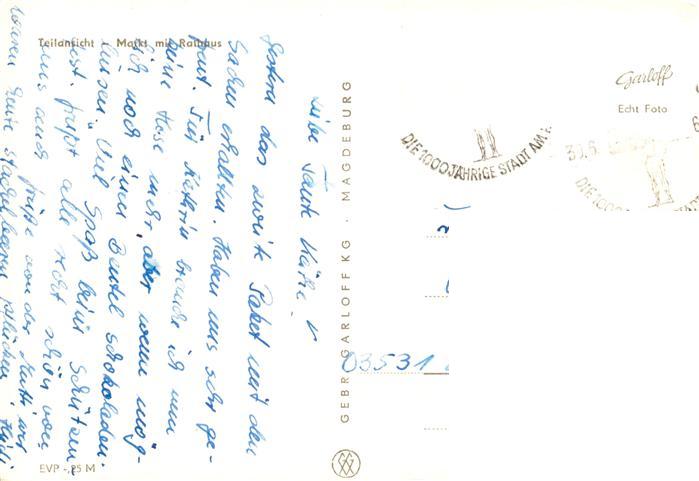 Teilansicht · Markt mit Rathaus
Liebe Tante Käthe!
Gestern das zweite Paket mit den
Sachen erhalten. Haben uns sehr ge-
freut. Für Kathrin brauche ich nun
keine Hose mehr, aber wenn mög-
lich noch einen Beutel Schokoladen.
Viel Spaß beim Schützen-
fest. grüßt alle recht schön von
uns auch Grüße von der Mutti
waren heute Stachelbeeren pflücken.
EVP -,25 M
GEBR. GARLOFF KG · MAGDEBURG
Garloff
Echt Foto
DIE 1000 JÄHRIGE STADT AM
30.6.
DIE 1000
03531